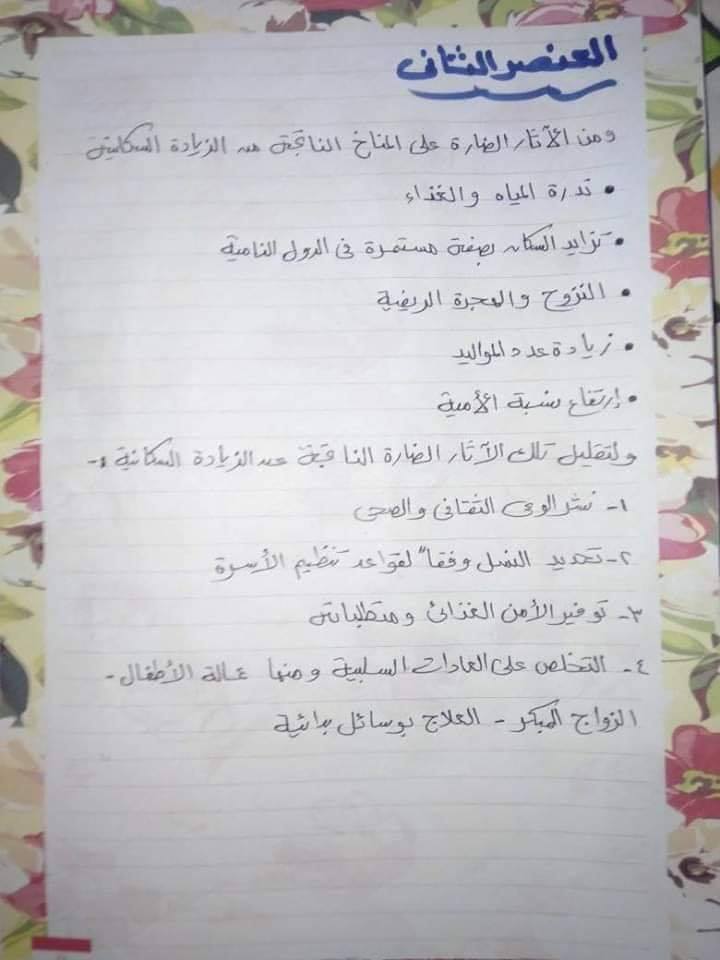 العنصر الثانى
ومن الآثار الضارة على المناخ الناتجة عن الزيادة السكانية
• ندرة المياه والغذاء
• تزايد السكان بصفة مستمرة فى الدول النامية
• النزوح والهجرة الريفية
• زيادة عدد المواليد
• إرتفاع نسبة الأمية
ولتقليل تلك الآثار الضارة الناتجة عن الزيادة السكانية :-
١- نشر الوعى الثقافى والصحى
٢- تحديد النسل وفقاً لقواعد تنظيم الأسرة
٣- توفير الأمن الغذائى ومتطلباته
٤- التخلص على العادات السلبية ومنها عمالة الأطفال -
الزواج المبكر - العلاج بوسائل بدائية